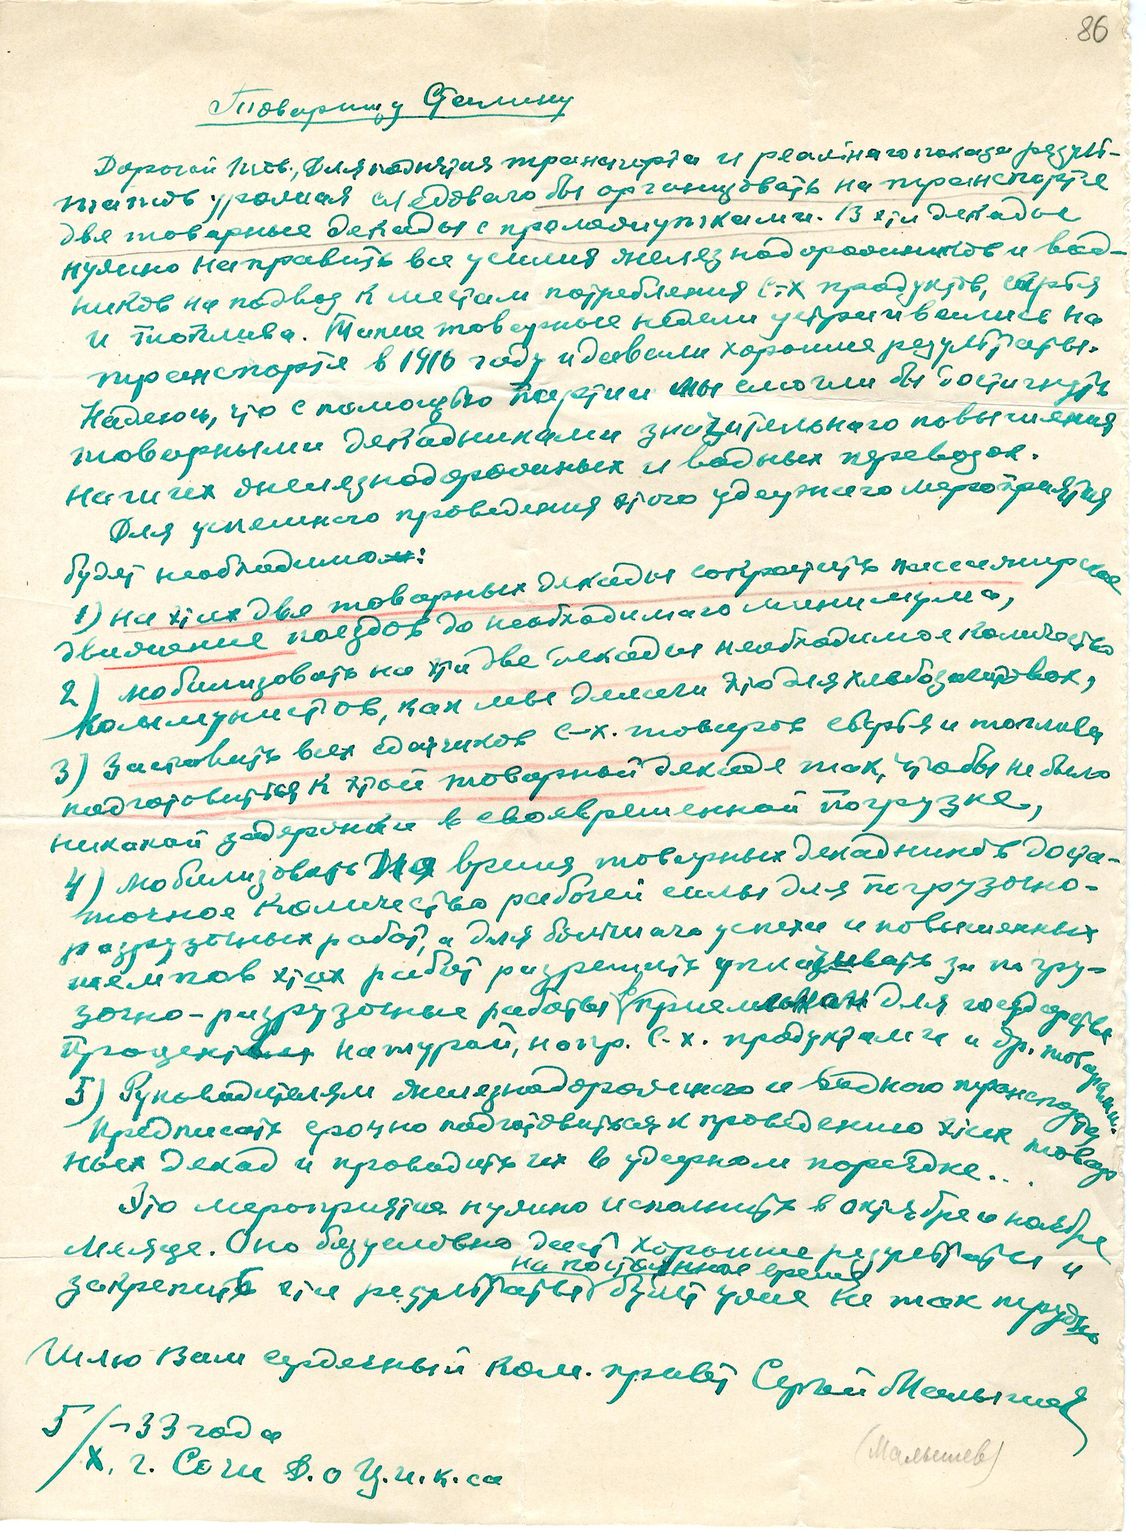 86
Товарищу Сталину
Дорогой тов., Для поднятия транспорта и реальнаго показа резуль-
татов урожая следовало бы организовать на транспорте
две товарные декады с промежутками. В эти декады
нужно направить все усилия железнодорожников и вод-
ников на подвоз к местам потребления с-х продуктов, сырья
и топлива. Такие товарные недели устраивались на
транспорте в 1916 году и давали хорошие результаты.
Надеюсь, что с помощью партии мы смогли бы достигнуть
товарными декадниками значительнаго повышения
наших железнодорожных и водных перевозок.
Для успешного проведения этого ударнаго мероприятия
будет необходимо:
1) на этих две товарных декады сократить пассажирское
движение поездов до необходимаго минимума,
2) мобилизовать на эти две декады необходимое количество
коммунистов, как мы делали это для хлебозаготовок,
3) Заставить всех сдатчиков с-х. товаров сырья и топлива
подготовиться к этой товарной декаде так, чтобы не было
никакой задержки в своевременной погрузке,
4) мобилизовать на время товарных декадников доста-
точное количество рабочей силы для погрузочно-
разгрузочных работ, а для большаго успеха и повышенных
темпов этих работ разрешить уплачивать за погру-
зочно-разгрузочные работы приемлемым для государства
процентом натурой, напр. с.-х. продуктами и др. товарами.
5) Руководителям железнодорожного и водного транспорта
предписать срочно подготовиться к проведению этих товар
ных декад и проводить их в ударном порядке...
Это мероприятие нужно исполнить в октябре и ноябре
месяце. Оно безусловно даст хорошие результаты и
на постоянное время
закрепить эти результаты будет уже не так трудно
Шлю Вам сердечный ком. привет Сергей Малышев
5/X-33 года
г. Сочи Д. о Ц.И.К.са
(Малышев)